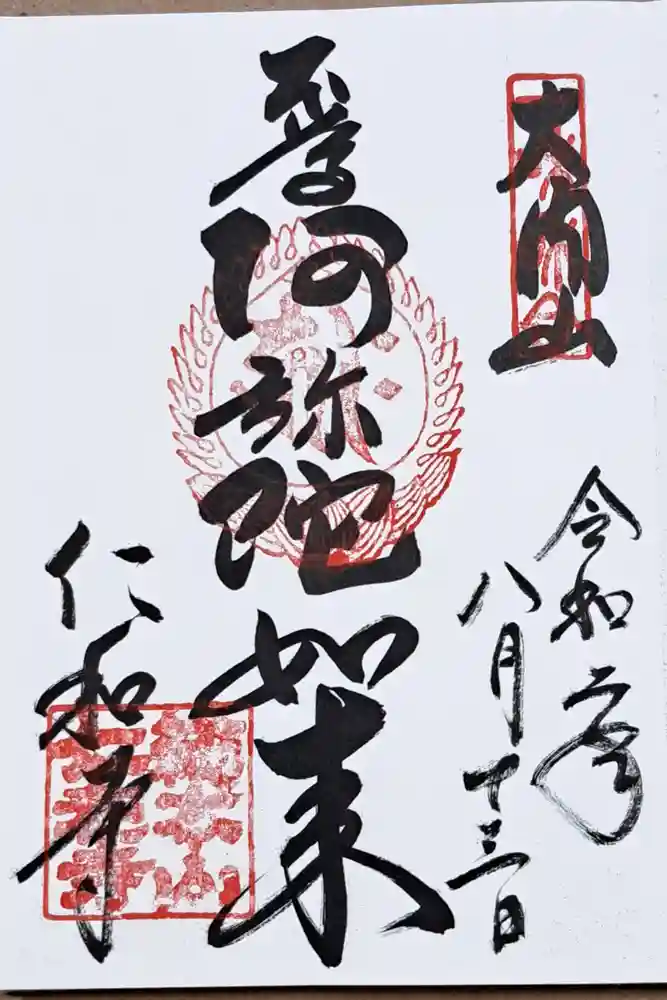 大内山
令和二年
八月十三日
阿弥陀如来
仁和寺